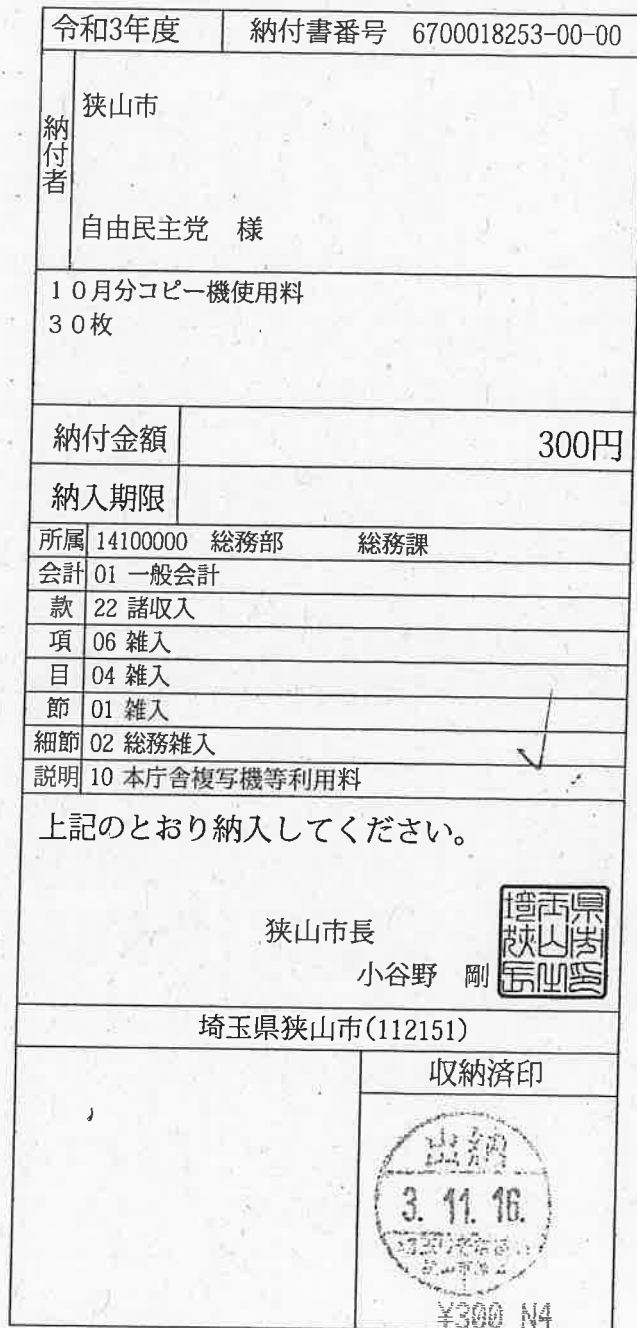 令和3年度 納付書番号 6700018253-00-00
納付者
狭山市
自由民主党 様
10月分コピー機使用料
30枚
納付金額 300円
納入期限
所属 14100000 総務部 総務課
会計 01 一般会計
款 22 諸収入
項 06 雑入
目 04 雑入
節 01 雑入
細節 02 総務雑入
説明 10 本庁舎複写機等利用料
上記のとおり納入してください。
狭山市長
小谷野 剛
埼玉県狭山市(112151)
収納済印
出納
3. 11. 16.
¥300 N4